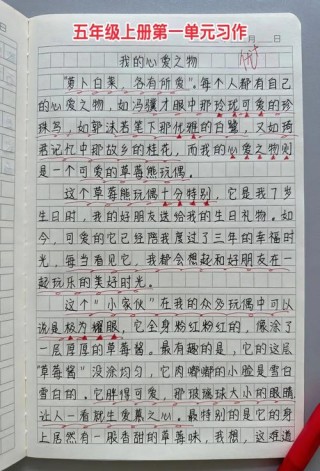 五年级上册第一单元习作
月 日
我的心爱之物
"萝卜白菜，各有所爱"。每个人都有自己
的心爱之物，如冯骥才眼中那玲珑可爱的珍
珠鸟，如郭沫若笔下那优雅的白鹭，又如琦
君记忆中那故乡的桂花，而我的心爱之物则
是一个可爱的草莓熊玩偶。
这个草莓熊玩偶十分特别，它是我7岁
生日时，我的好朋友送给我的生日礼物。如
今，可爱的它已经陪我度过了三年的幸福时
光，每当看见它，我都会想起和好朋友在一
起玩乐的美好时光。
这个"小家伙"在我的众多玩偶中可以
说是极为耀眼，它全身粉红粉红的，像涂了
一层厚厚的草莓酱。最有趣的是，它的这层
"草莓酱"没涂均匀，它肉嘟嘟的小脸是雪白
雪白的。它胖得可爱，那玻璃球大小的眼睛
让人一看就生爱慕之心。最特别的是它的身
上居然有一股香甜的草莓味，我想，这难道